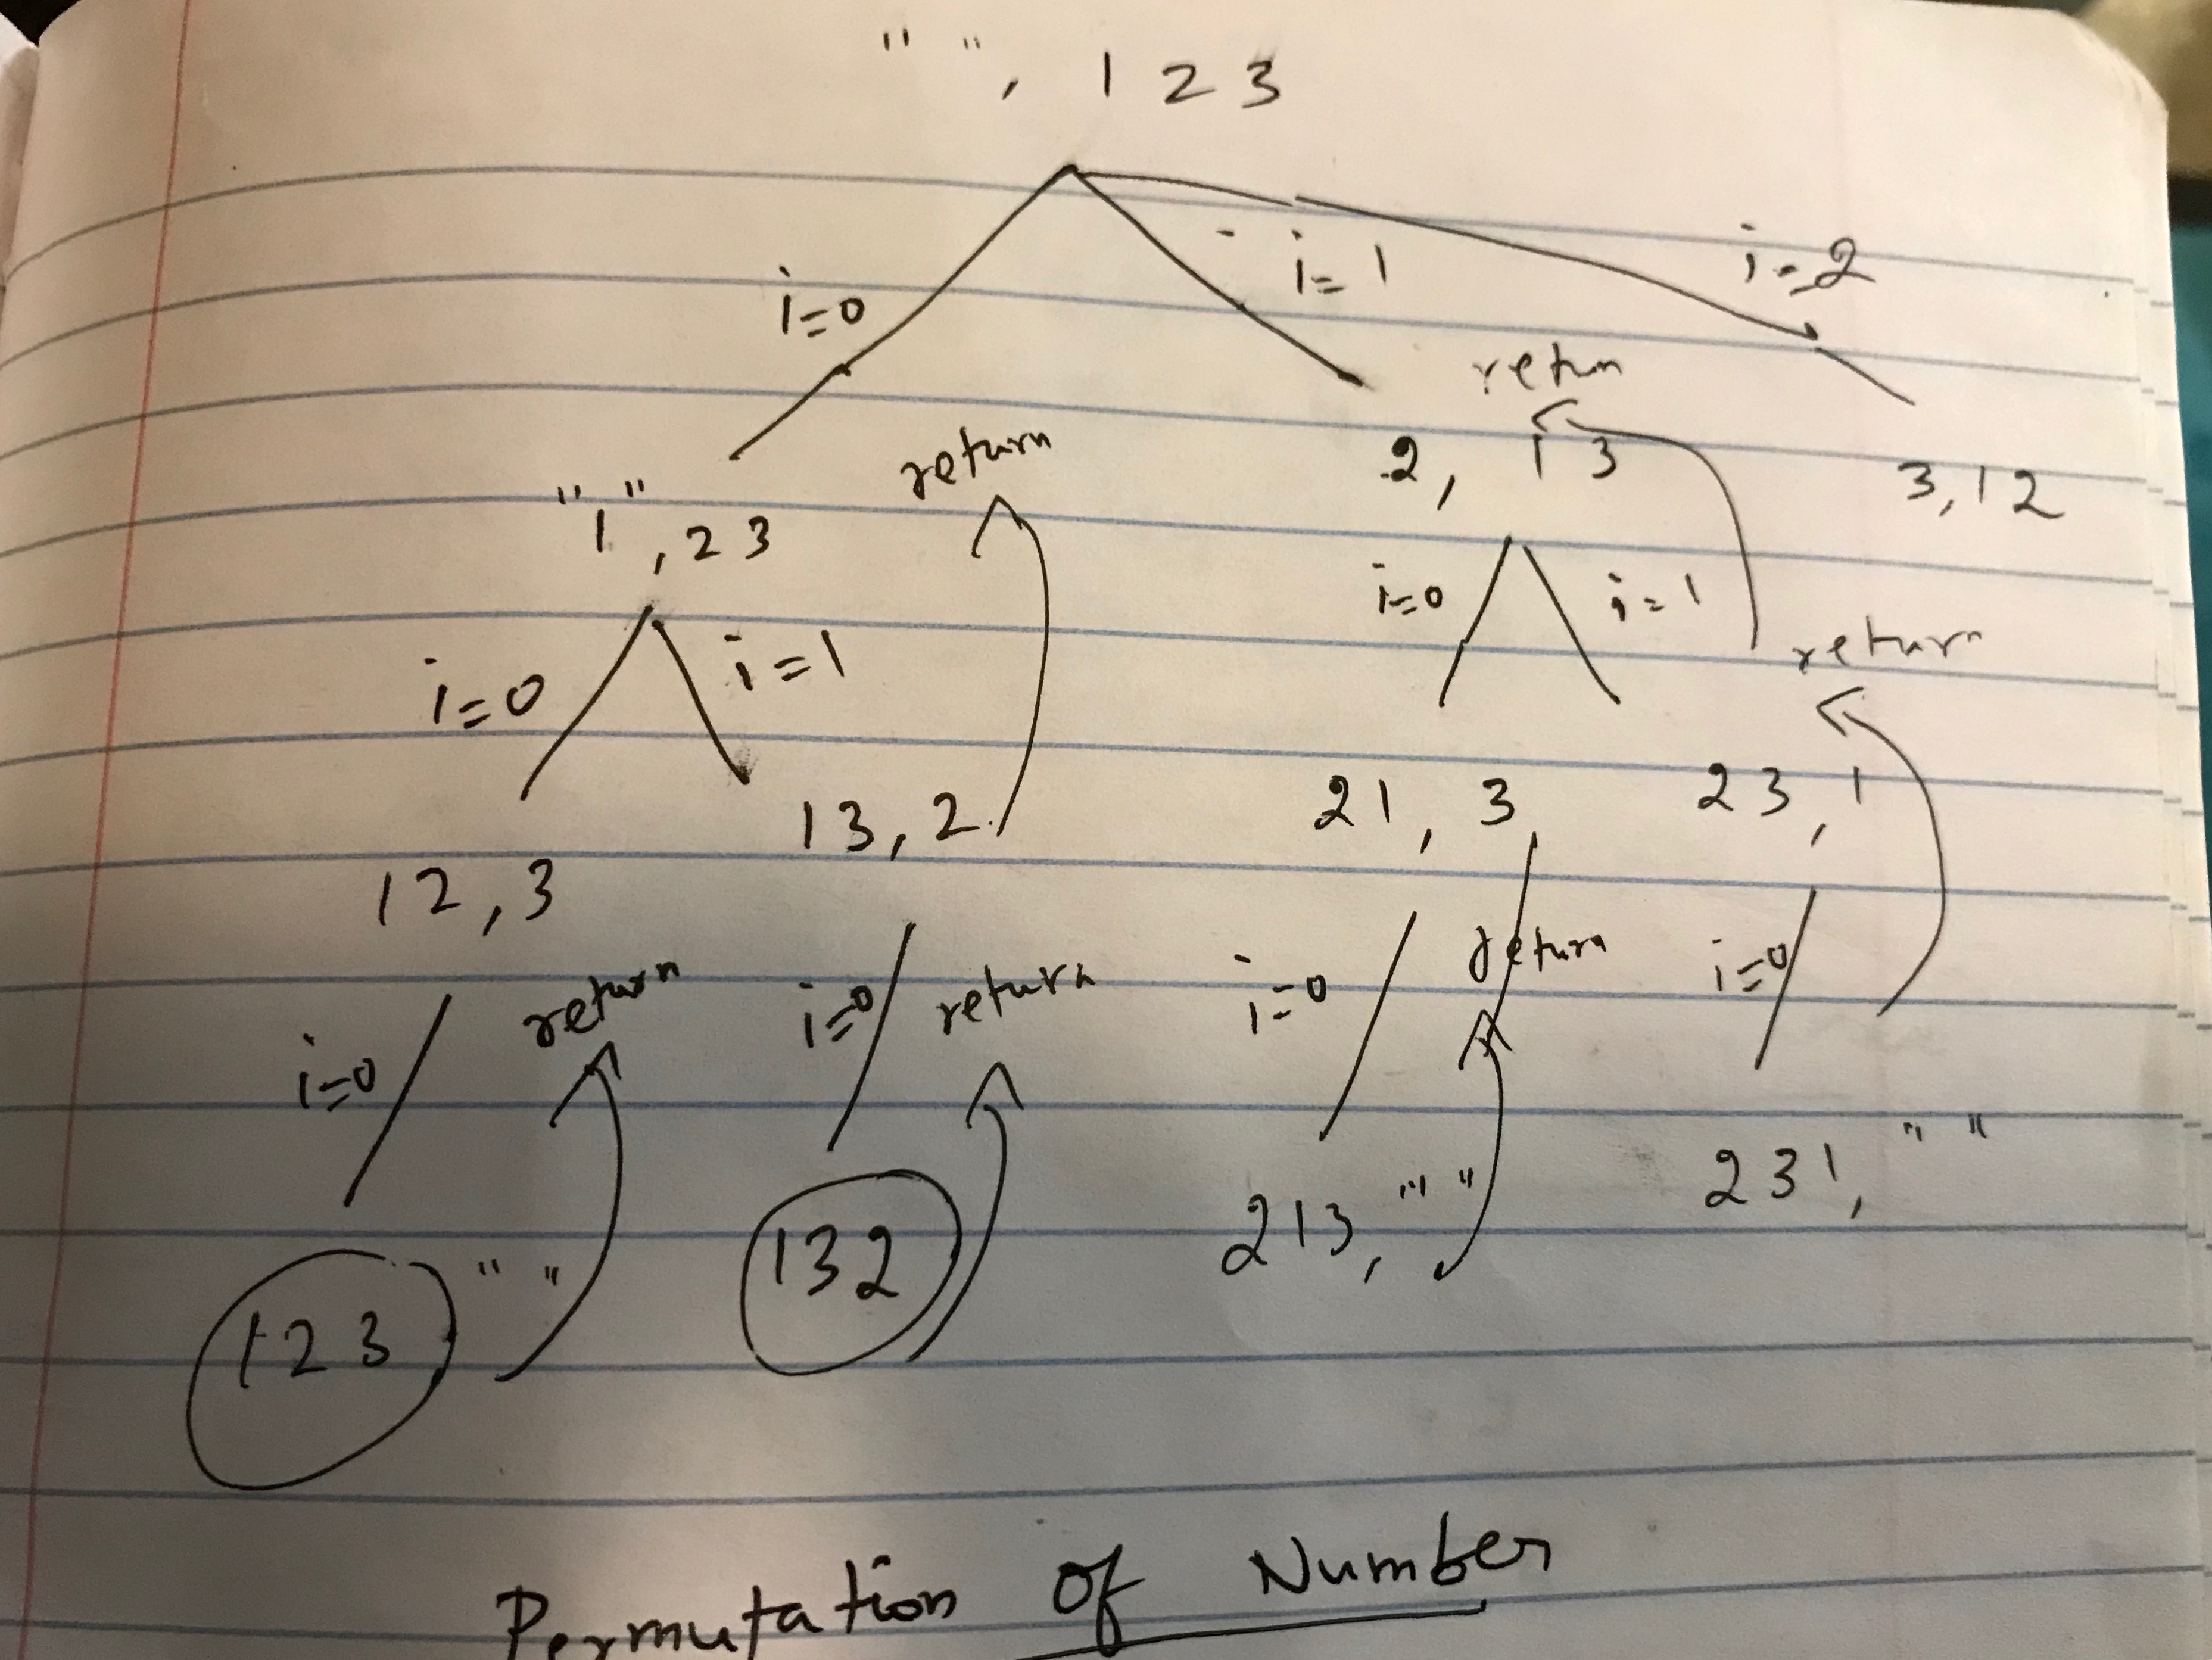 " ", 1 2 3
i=0 i=1 i=2
return
return 2, 1 3 3,12
"1",23
i=0 i=1
i=0 i=1 return
13,2 21, 3 23,1
12,3
i=0 return i=0 return i=0 return i=0
123 " " 132 213, " " 231, " "
Permutation Of Number